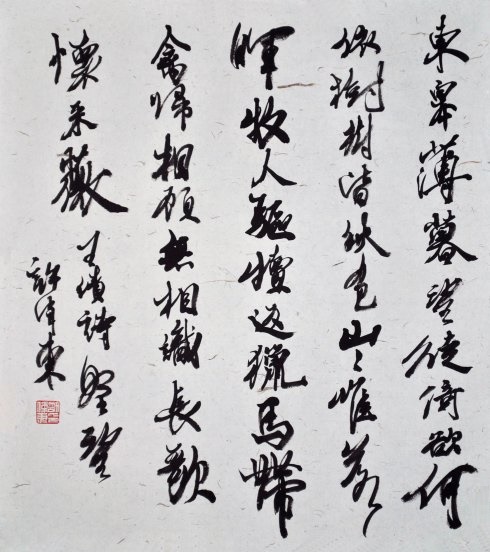 東皋薄暮望徙倚欲何
依樹樹皆秋色山々惟落
暉牧人驅犢返獵馬帶
禽歸相顧無相識長歌
懷采薇 王績詩野望
許 東